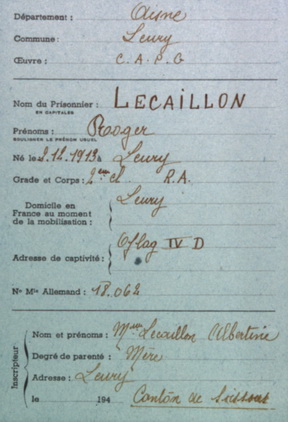 Département : Aisne
Commune : Leury
Œuvre : C. A. P. G
Nom du Prisonnier : LECAILLON
EN CAPITALES
Prénoms : Rooger
SOULIGNER LE PRÉNOM USUEL
Né le 2.12.1913 à Leury
Grade et Corps : 2ème cl. R.A.
Domicile en
France au moment
de la mobilisation :
Leury
Adresse de captivité : Oflag IV D
No Mle Allemand : 18.062
Inscripteur
Nom et prénoms : Mme Lecaillon Albertine
Degré de parenté : Mère
Adresse : Leury
le 194 Canton de Soissons